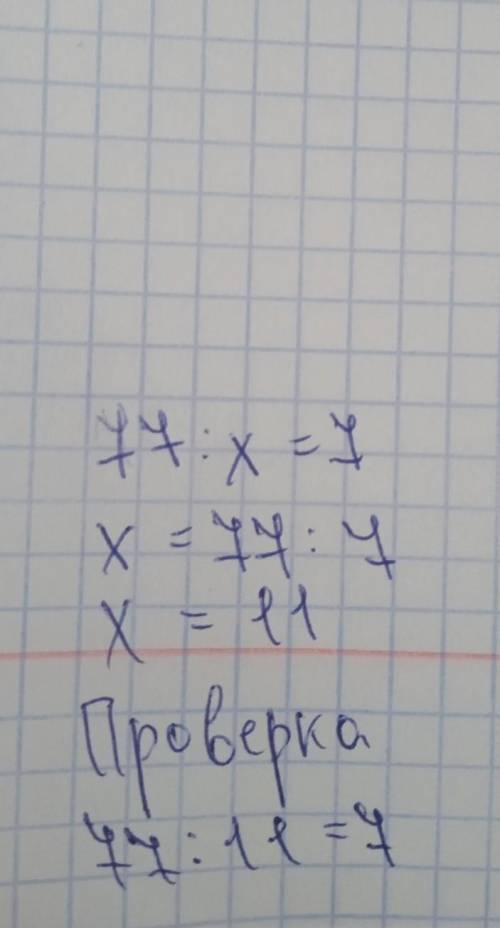 77 : x = 7
x = 77 : 7
x = 11
Проверка
77 : 11 = 7